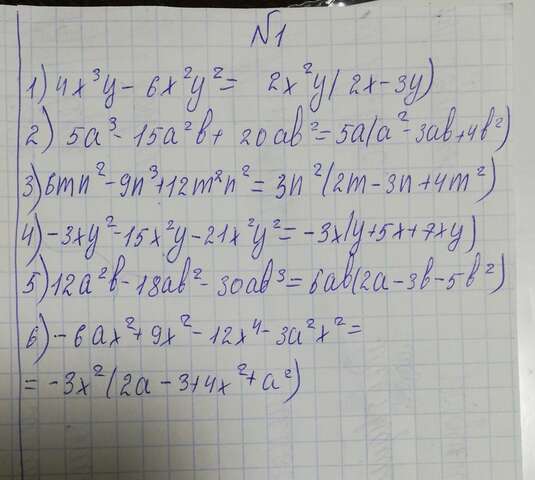 №1
1) 4x³y - 6x²y² = 2x²y(2x - 3y)
2) 5a³ - 15a²b + 20ab² = 5a(a² - 3ab + 4b²)
3) 6mn² - 9n³ + 12m²n² = 3n²(2m - 3n + 4m²)
4) -3xy² - 15x²y - 21x²y² = -3x(y + 5x + 7xy)
5) 12a²b - 18ab² - 30ab³ = 6ab(2a - 3b - 5b²)
6) -6ax² + 9x² - 12x⁴ - 3a²x² =
= -3x²(2a - 3 + 4x² + a²)